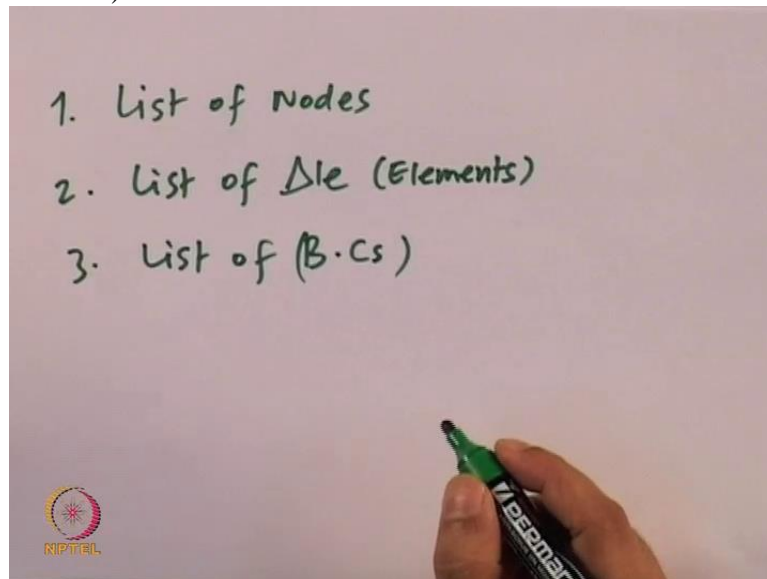 1. List of Nodes
2. List of Δle (Elements)
3. List of (B.Cs)
PERMA
NPTEL